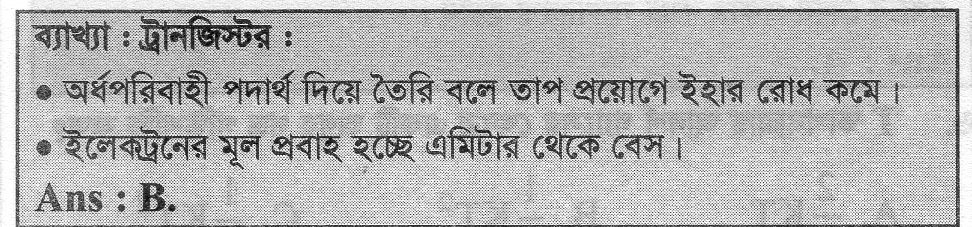 ব্যাখ্যা : ট্রানজিস্টর :
● অর্ধপরিবাহী পদার্থ দিয়ে তৈরি বলে তাপ প্রয়োগে ইহার রোধ কমে।
● ইলেকট্রনের মূল প্রবাহ হচ্ছে এমিটার থেকে বেস।
Ans : B.